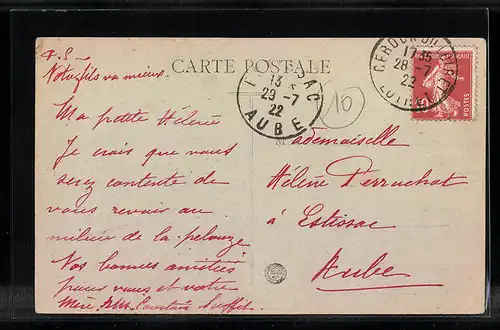 P.S.
Votre fils va mieux
CARTE POSTALE
Ma petite Hélène
Je crois que vous
serez contente de
vous revoir au
milieu de la pelouze
Nos bonnes amitiés
pour vous et votre
Mère
Mademoiselle
Hélène Perruchot
à Estissac
Aube
13
29 -7
22
AUBE
CERDON DU LOIRET
17 35
28 -7
22
(LOIRET)
10
POSTES